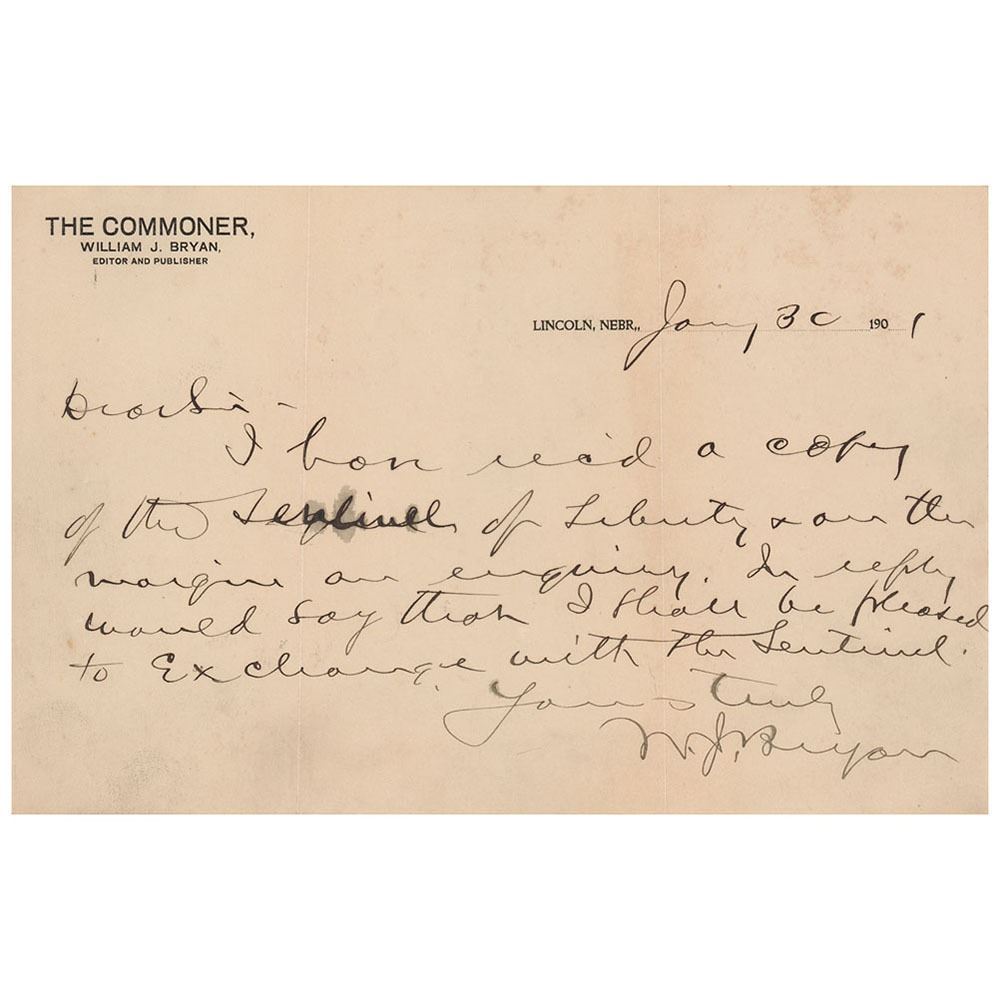 THE COMMONER,
WILLIAM J. BRYAN,
EDITOR AND PUBLISHER
LINCOLN, NEBR., Jany 30 1901
Dear Sir -
I have rec'd a copy
of the Sentinel of Liberty & on the
margin an enquiry. In reply
would say that I shall be pleased
to Exchange with the Sentinel.
Yours truly
W. J. Bryan